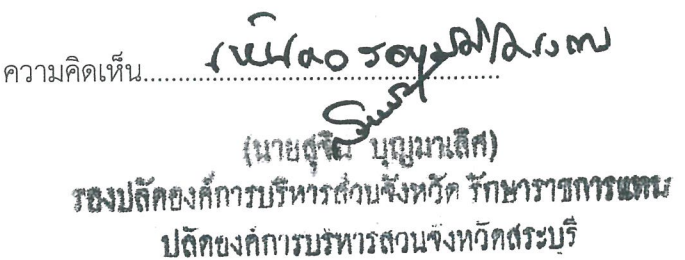 ความคิดเห็น.......................................................
(นายสุจิน บุญมาเลิศ)
รองปลัดองค์การบริหารส่วนจังหวัด รักษาราชการแทน
ปลัดองค์การบริหารส่วนจังหวัดสระบุรี